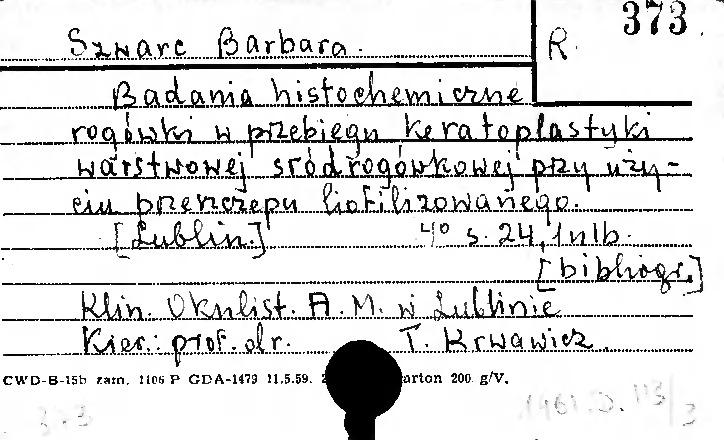 Szwarc Barbara.
R. 373
Badania histochemiczne
rogówki w przebiegu keratoplastyki
warstwowej śródrogówkowej przy uży-
ciu przeszczepu liofilizowanego.
[Lublin.] 4° s. 24, 1 nlb.
[bibliogr.]
Klin. Okulist. A. M. w Lublinie
Kier.: prof. dr. T. Krwawicz.
CWD-B-15b zam. 1106 P GDA-1479 11.5.59. arton 200 g/V.
373 1961.D. 113/3